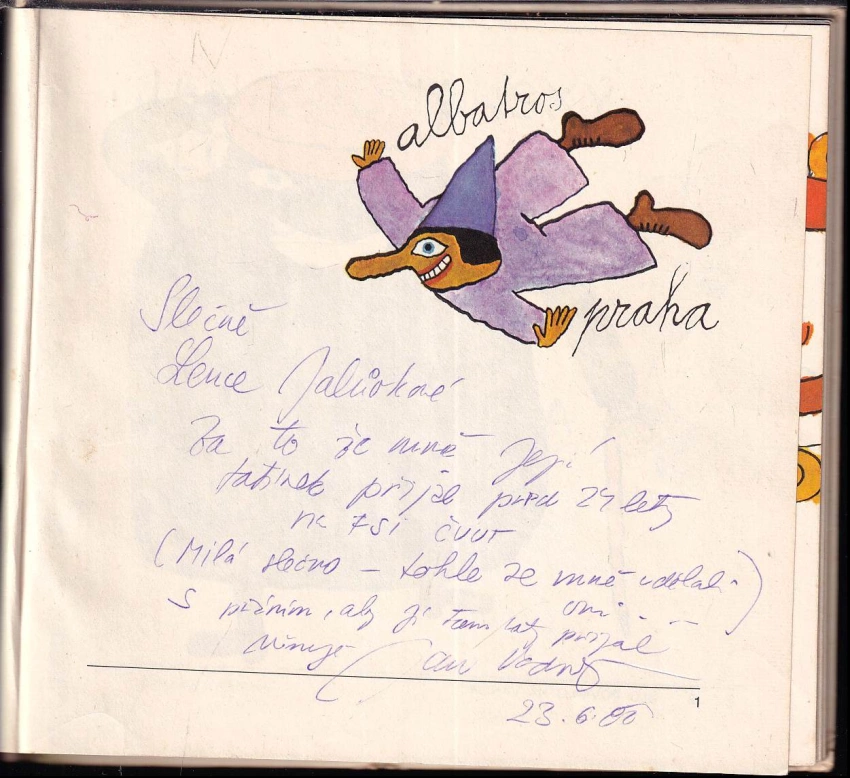 albatros
praha
Slečně
Lence
Za to že mně Její
tatínek přijal před 24 lety
na FSI ČVUT
(Milá slečno – tohle ze mně udělali
oni
S přáním, aby ji tam taky přijali
věnuje Jan Vodňanský
23.6.
1